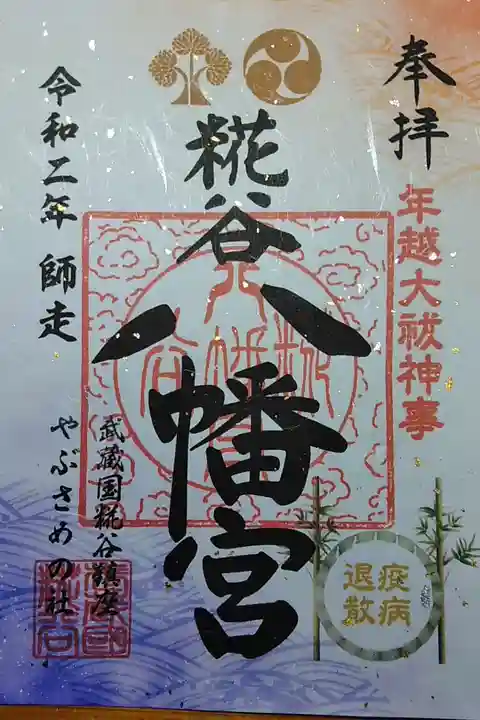 奉拝
年越大祓神事
糀谷八幡宮
令和二年 師走
武蔵国糀谷鎮座
やぶさめの社
疫病
退散